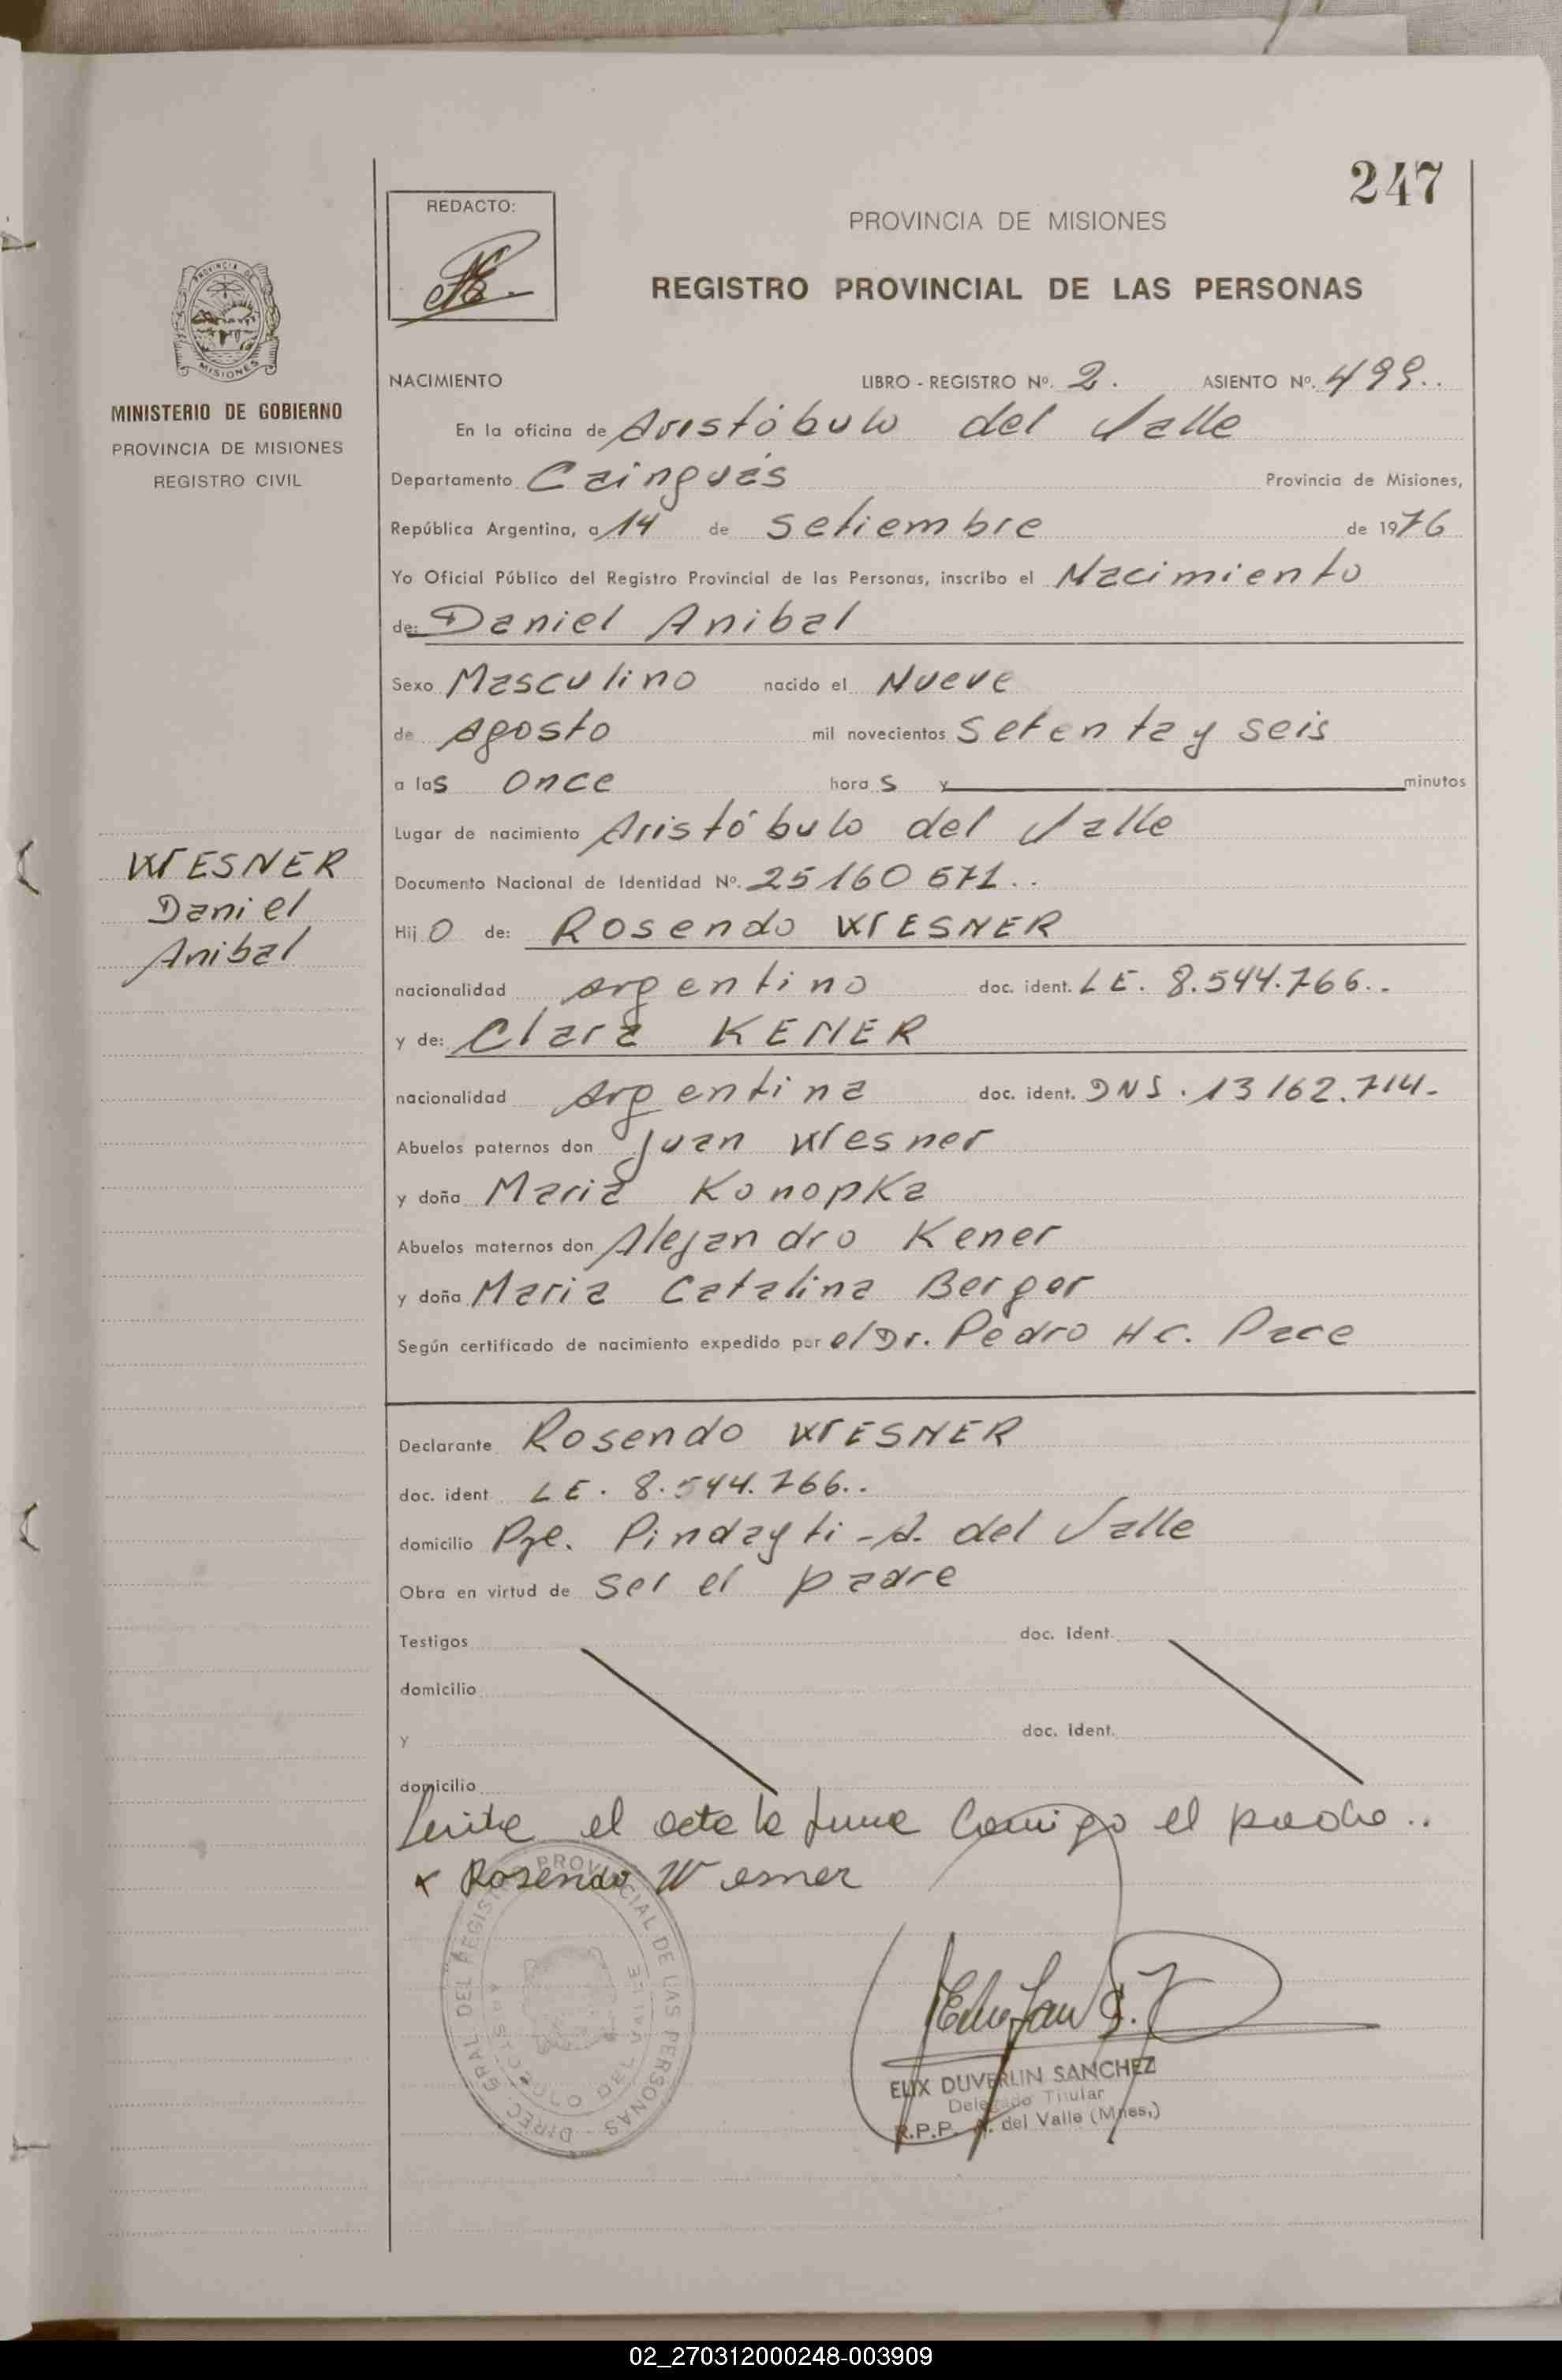 247
REDACTO:
PROVINCIA DE MISIONES
REGISTRO PROVINCIAL DE LAS PERSONAS
PROVINCIA DE
MISIONES
MINISTERIO DE GOBIERNO
PROVINCIA DE MISIONES
REGISTRO CIVIL
NACIMIENTO LIBRO - REGISTRO Nº. 2. ASIENTO Nº. 499..
En la oficina de Aristóbulo del Valle
Departamento Cainguás Provincia de Misiones,
República Argentina, a 14 de setiembre de 1976
Yo Oficial Público del Registro Provincial de las Personas, inscribo el Nacimiento
de: Daniel Anibal
Sexo Masculino nacido el Nueve
de Agosto mil novecientos setenta y seis
a las once horas y minutos
Lugar de nacimiento Aristóbulo del Valle
WESNER
Daniel
Anibal
Documento Nacional de Identidad Nº. 25160671..
Hijo de: Rosendo WESNER
nacionalidad argentino doc. ident. LE. 8.544.766..
y de: Clara KENER
nacionalidad Argentina doc. ident. DNI. 13162.714-
Abuelos paternos don Juan Wesner
y doña Maria Konopka
Abuelos maternos don Alejandro Kener
y doña Maria Catalina Berger
Según certificado de nacimiento expedido por el Dr. Pedro H C. Pace
Declarante Rosendo WESNER
doc. ident LE. 8.544.766..
domicilio Pje. Pindayti - A. del Valle
Obra en virtud de ser el padre
Testigos doc. ident.
domicilio
y doc. ident.
domicilio
el acta la firma Conmigo el padre..
x Rosendo Wesner
DIREC. GRAL DEL REGISTRO PROVINCIAL DE LAS PERSONAS
ARISTOBULO DEL VALLE
ELIX DUVERLIN SANCHEZ
Delegado Titular
R.P.P. A. del Valle (Mnes,)
02_270312000248-003909